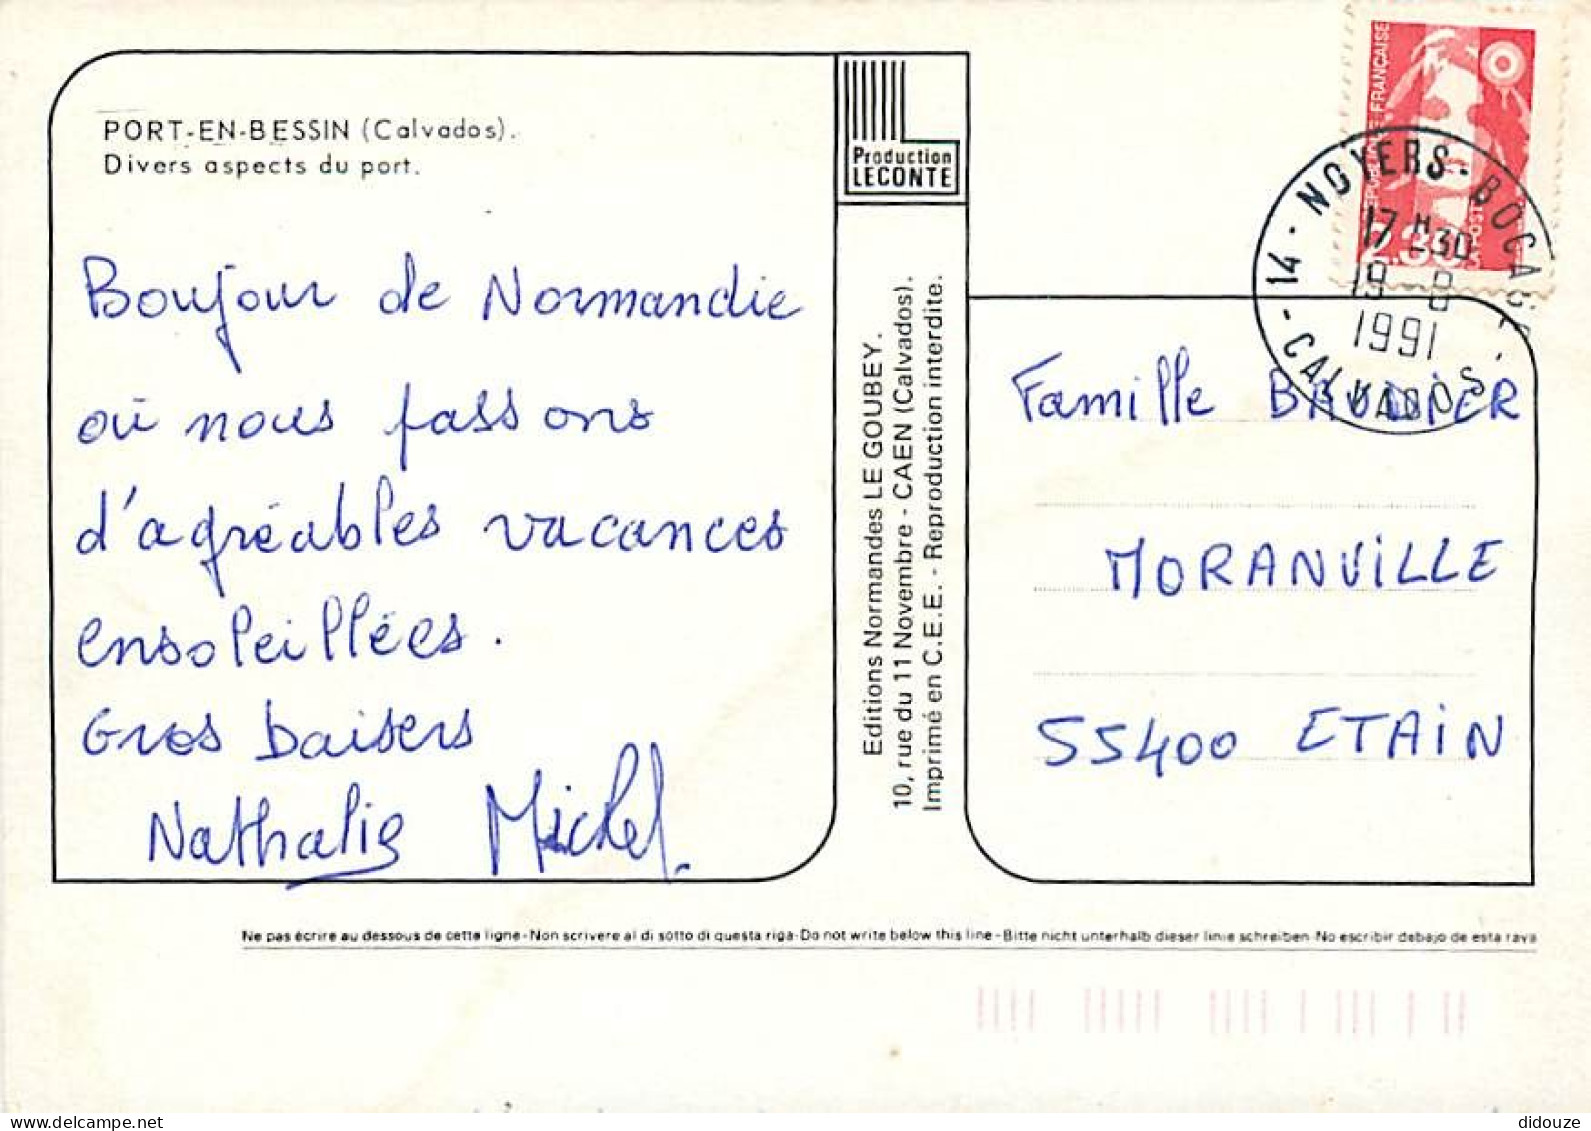 PORT-EN-BESSIN (Calvados).
Divers aspects du port.
Boujour de Normandie
où nous passons
d'agréables vacances
ensoleillées.
Gros baisers
Nathalie Michel.
Production
LECONTE
Editions Normandes LE GOUBEY.
10, rue du 11 Novembre - CAEN (Calvados).
Imprimé en C.E.E. - Reproduction interdite.
REPUBLIQUE FRANÇAISE
LA POSTE
14 - NOYERS-BOCAGE - CALVADOS -
17 H 30
19 - 8
1991
Famille
MORANVILLE
55400 ETAIN
Ne pas écrire au dessous de cette ligne-Non scrivere al di sotto di questa riga-Do not write below this line-Bitte nicht unterhalb dieser linie schreiben-No escribir debajo de esta raya
didouze